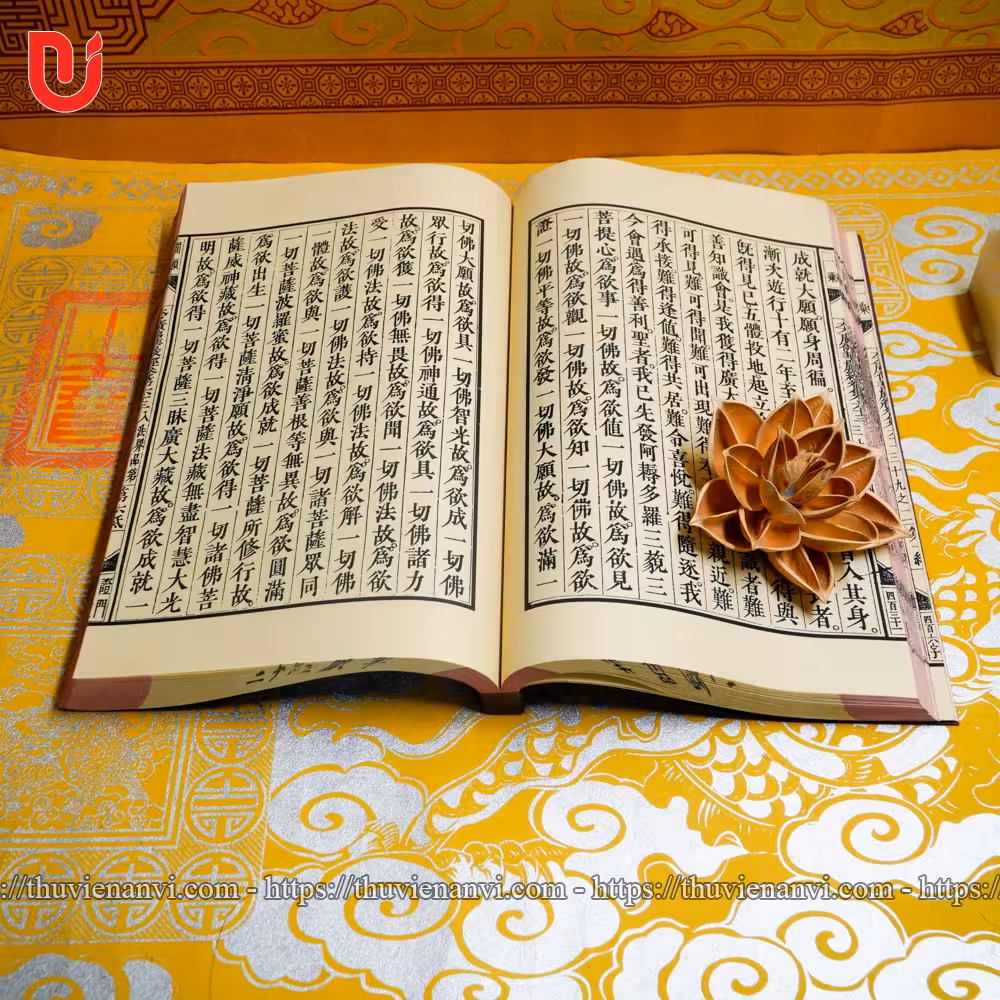 成就大願願身周徧。入其身。
漸大遊行十有二年至者。
旣得見已五體投地起立得與
善知識會是我獲得廣大識者難
可得見難可得聞難可出現難得親近。難
得承接難得逢値。難得共居。難令喜悅。難得隨逐我
今會遇爲得善利。聖者。我已先發阿耨多羅三藐三
菩提心爲欲事一切佛故。爲欲値一切佛故。爲欲見
一切佛故。爲欲觀一切佛故。爲欲知一切佛故。爲欲
證一切佛平等故。爲欲發一切佛大願故。爲欲滿一
切佛大願故。爲欲具一切佛智光故。爲欲成一切佛
眾行故。爲欲得一切佛神通故。爲欲具一切佛諸力
故。爲欲獲一切佛無畏故。爲欲聞一切佛法故。爲欲
受一切佛法故。爲欲持一切佛法故。爲欲解一切佛
法故。爲欲護一切佛法故。爲欲與一切諸菩薩眾同
一體故。爲欲與一切菩薩善根等無異故。爲欲圓滿
一切菩薩波羅蜜故。爲欲成就一切菩薩所修行故。
爲欲出生一切菩薩清淨願故。爲欲得一切諸佛菩
薩威神藏故。爲欲得一切菩薩法藏無盡智慧大光
明故。爲欲得一切菩薩三昧廣大藏故。爲欲成就一
://thuvienanvi.com - https://thuvienanvi.com - https://thuvienanvi.com - https:/